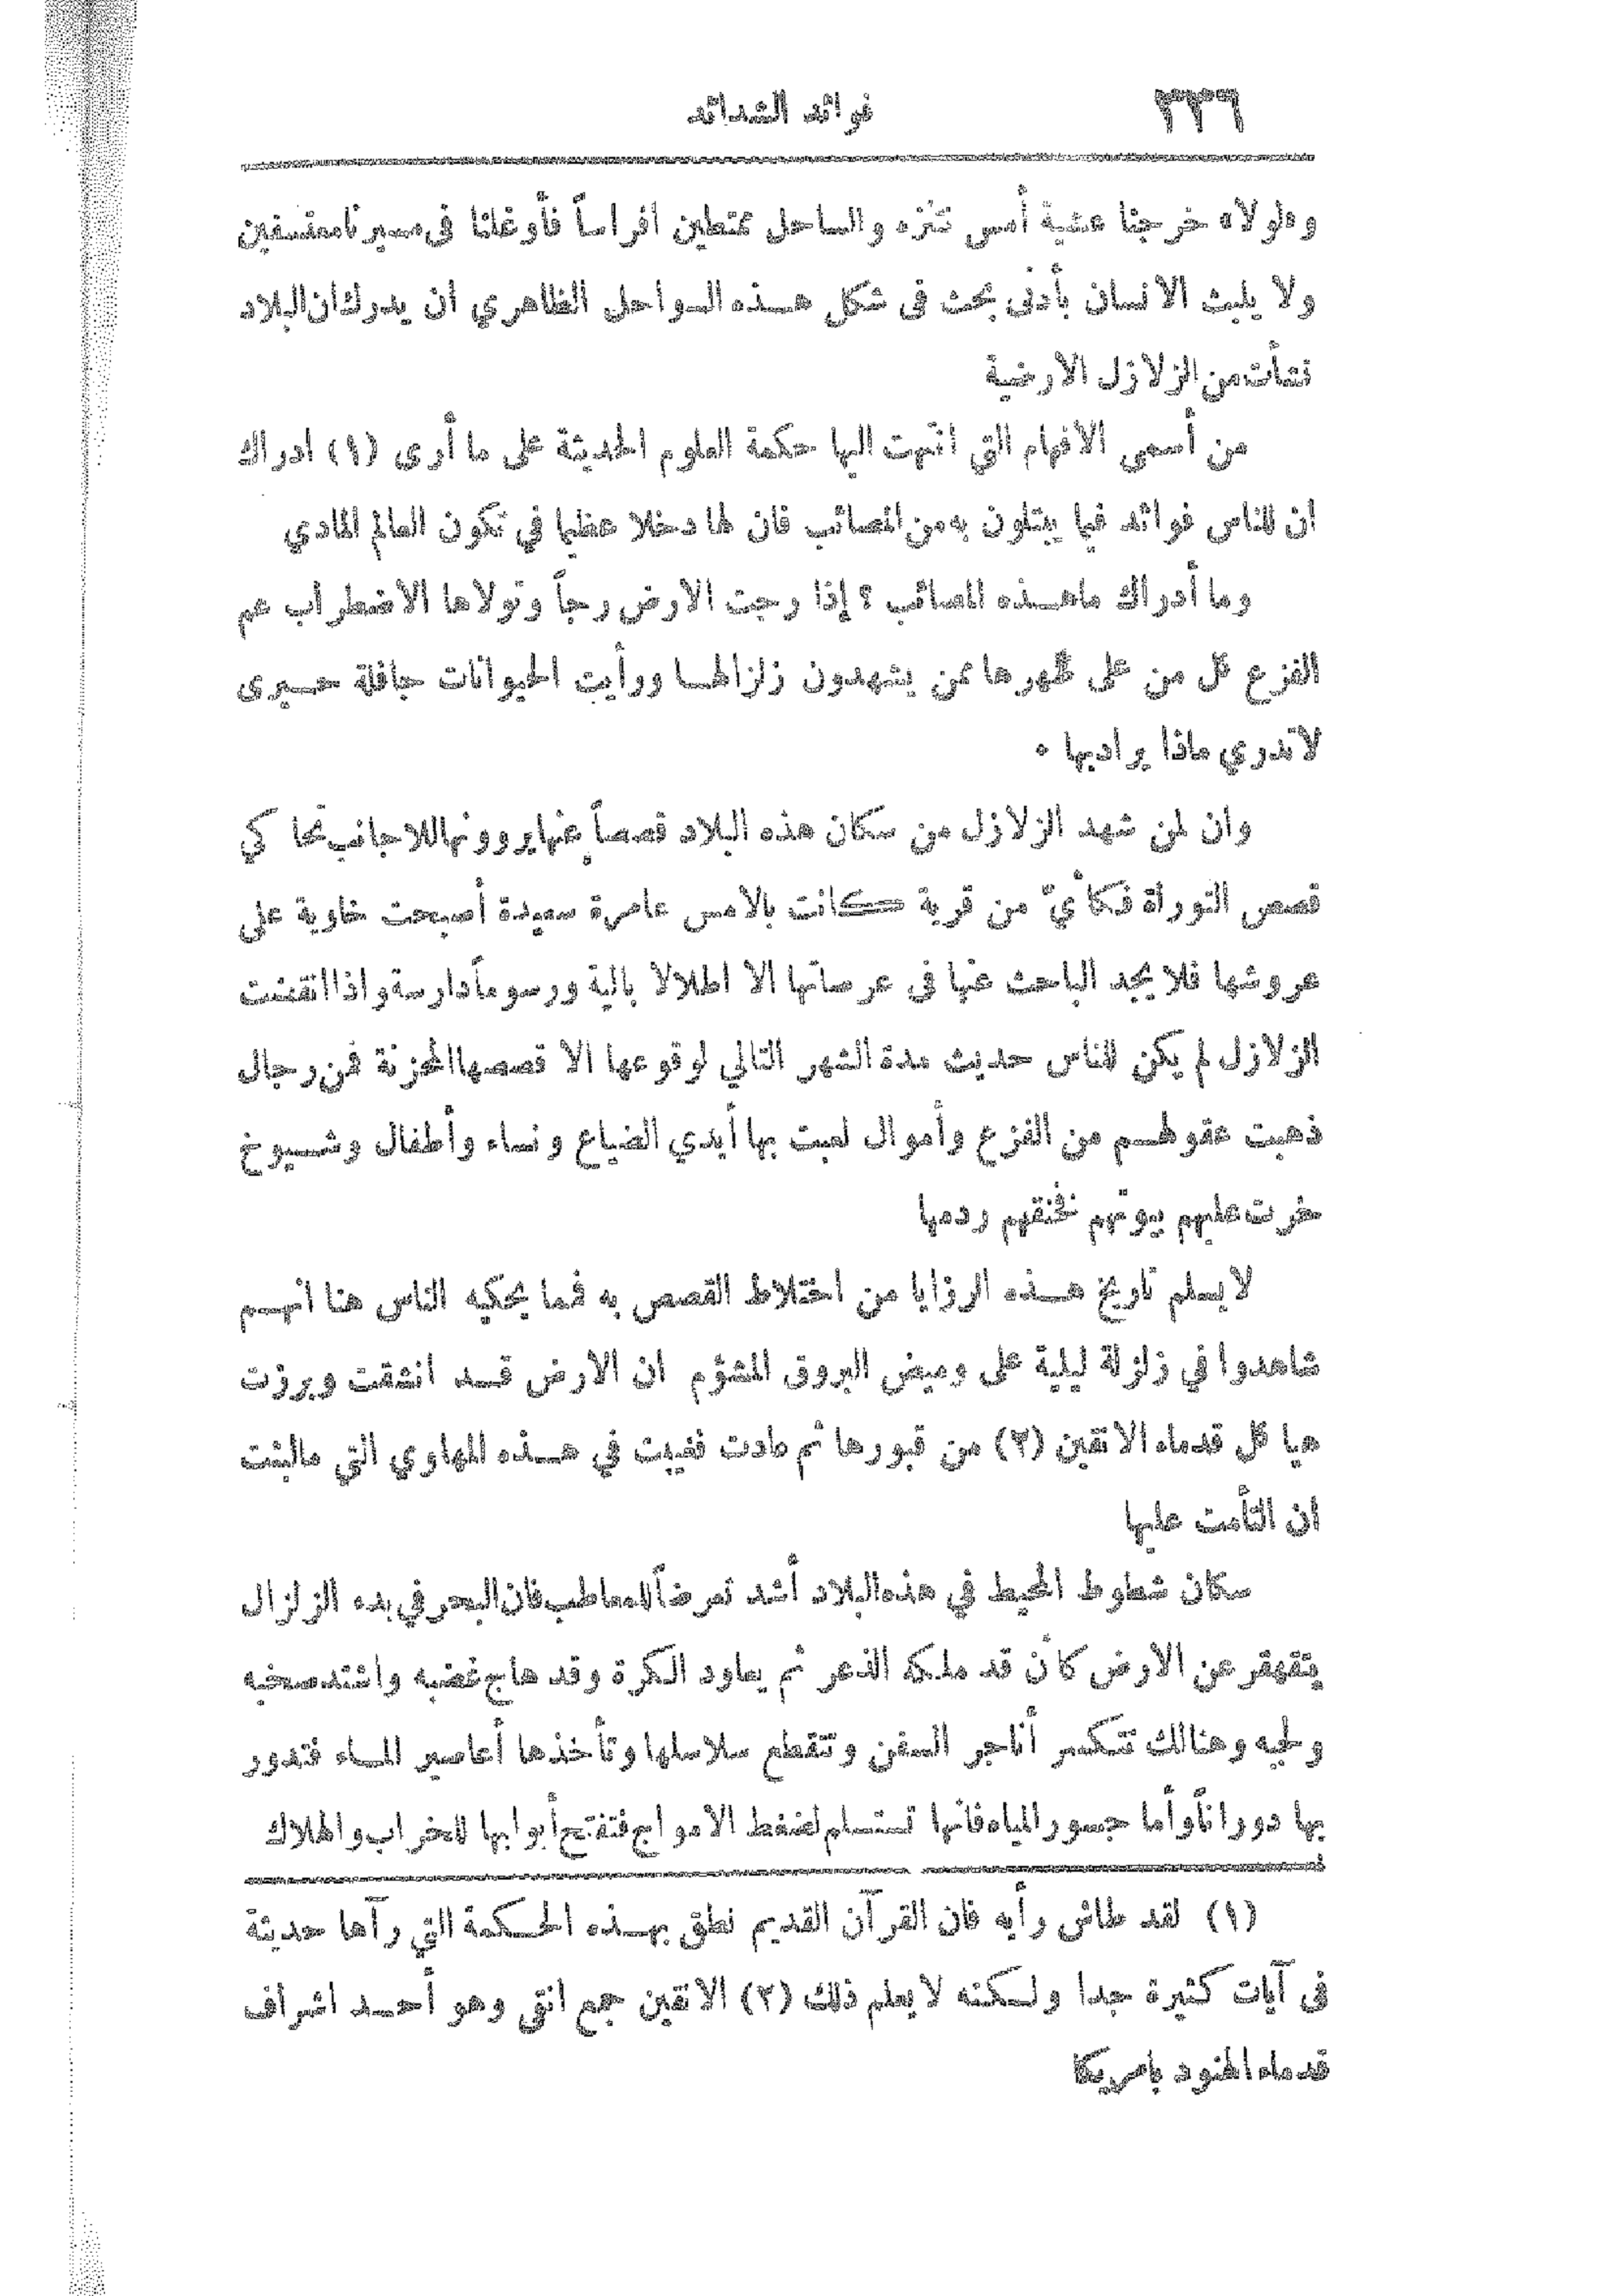 ٣٣٦ فوائد الشدائد
وطولاه خرجنا عشية أمس نتنزه والساحل ممتطين افراساً فأوغلنا فى سيرنا معتسفين
ولا يلبث الانسان بأدنى بحث فى شكل هـذه السواحل الظاهري ان يدرك ان البلاد
نشأت من الزلازل الارضية
من أسمى الافهام التي انتهت اليها حكمة العلوم الحديثة على ما أرى (١) ادراك
ان للناس فوائد فيما يبتلون به من المصائب فان لها دخلا عظيما في تكون العالم المادي
وما أدراك ماهـذه المصائب ؟ إذا رجت الارض رجاً وتولاها الاضطراب عم
الفزع كل من على ظهرها ممن يشهدون زلزالها ورأيت الحيوانات جافلة حيرى
لاتدري ماذا يراد بها ٠
وان لمن شهد الزلازل من سكان هذه البلاد قصصاً عنها يروونها للاجانب تحا كي
قصص التوراة فكأيّ من قرية كانت بالامس عامرة سعيدة أصبحت خاوية على
عروشها فلا يجد الباحث عنها فى عرصاتها الا اطلالا بالية ورسوماً دارسة واذا انقضت
الزلازل لم يكن للناس حديث مدة الشهر التالي لوقوعها الا قصصها المحزنة فمن رجال
ذهبت عقولهـم من الفزع وأموال لعبت بها أيدي الضياع ونساء وأطفال وشـيوخ
خرت عليهم بيوتهم فخنقهم ردمها
لايسلم تاريخ هـذه الرزايا من اختلاط القصص به فمما يحكيه الناس هنا انهـم
شاهدوا في زلزلة ليلية على وميض البروق المشؤم ان الارض قـد انشقت وبرزت
هيا كل قدماء الانقين (٢) من قبورها ثم مادت فغيبت في هـذه المهاوي التي مالبثت
ان التأمت عليها
سكان شطوط المحيط في هذه البلاد أشد تعرضاً للمعاطب فان البحر في بدء الزلزال
يتقهقر عن الارض كأن قد ملكه الذعر ثم يعاود الكرة وقد هاج غضبه واشتد صخبه
ولجبه وهنالك تتكسر أناجر السفن وتتقطع سلاسلها وتأخذها أعاصير المـاء فتدور
بها دوراناً وأما جسور المياه فانها تستسلم لضغط الامواج فتفتح أبوابها للخراب والهلاك
(١) لقد طاش رأيه فان القرآن القديم نطق بهـذه الحـكمة التي رآها حديثة
فى آيات كثيرة جدا ولـكنه لا يعلم ذلك (٢) الانقين جمع انقى وهو أحـد اشراف
قدماء الهنود بامريكا